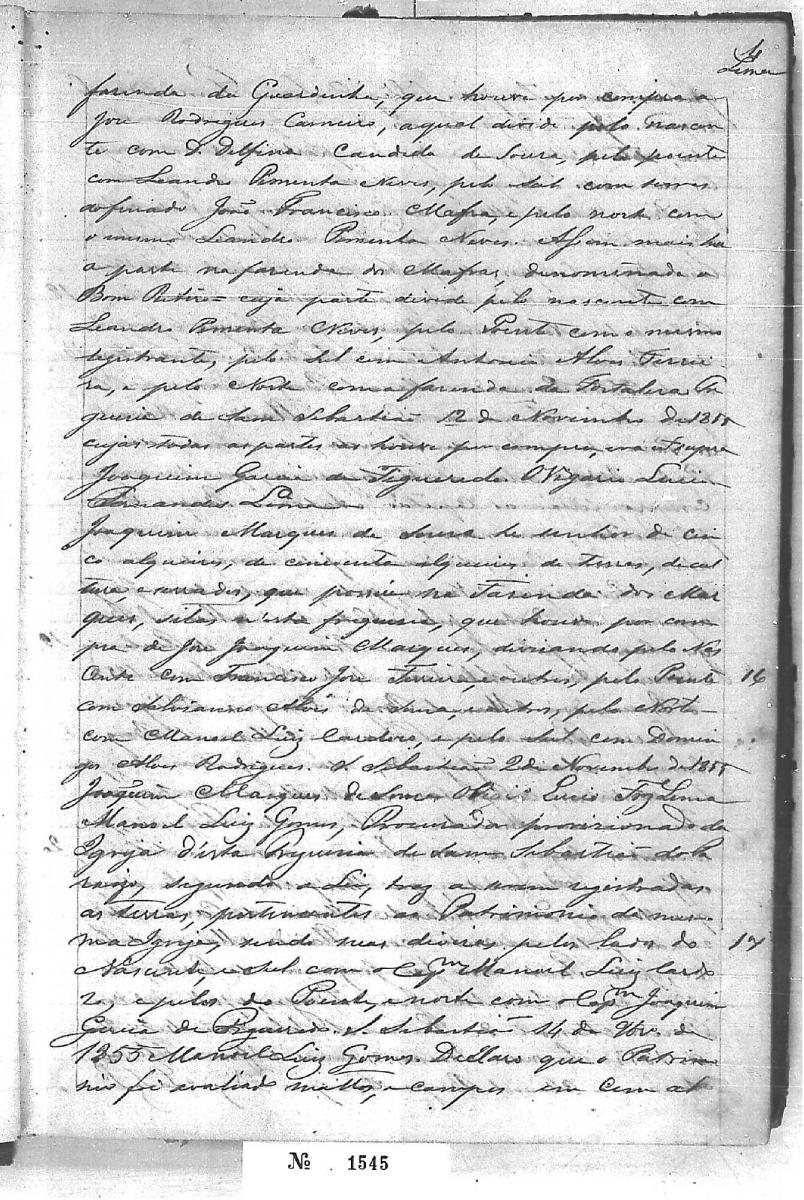 4
Lima
fazenda da Guardinha, que houve por compra a
Jose Rodrigues Carneiro, a qual divide pelo nascen
te com D. Delfina Candida de Sousa, pelo poente
com Leandro Pimenta Neves, pelo Sul com terras
do finado João Francisco Mafra, e pelo norte com
o mesmo Leandro Pimenta Neves. Assim mais hua
a parte na fazenda dos Mafras, denominada o
Bom Retiro= cuja parte divide pelo nascente com
Leandro Pimenta Neves, pelo Poente com o mesmo
registrante, pelo Sul com Antonio Alves Ferrei
ra, e pelo Norte com a fazenda da Fortalesa Fre
guesia de Sam Sebastião 12 de Novembro de 1855
cujas todas as partes as houve por compra, era
Joaquim Garcia de Figueredo O Vigario Luis
Fernandes Lima
Joaquim Marques de Sousa he senhor de cin
co alqueires, de cincoenta alqueires de terras, de cul
tura, e serrados, que possue na Fazenda dos Mar
ques, sitas n'esta freguesia, que houve por com
pra de Jose Joaquim Marques, divisando pelo Nas
cente com Francisco Jose Ferreira, e outros, pelo Poente
16
com Silvianno Alves da, e outros, pelo Norte
com Manoel Luiz Cardoso, e pelo Sul com Domin
gos Alves Rodrigues. S. Sebastião 2 de Novembro de 1855
Joaquim Marques de Sousa O Vigr.o Luis Frz Lima
Manoel Luiz Gomes, Procurador provizionado da
Igreja d'esta Freguesia de Sam Sebastião do Pa
raizo, segundo a Lei, traz a serem registradas
as terras, pertencentes ao Patrimonio da mes-
ma Igreja, sendo suas divisas pelos lados do
17
Nascente, e Sul com o Capm Manoel Luiz Cardo
zo, e pelos do Poente, e norte com o Capm Joaquim
Garcia de Figueredo. S. Sebastião 14 de Nov. de
1855 Manoel Luiz Gomes. Declaro que o Patrimo
nio foi avaliado mattos, e campos em cem al
Nº 1545